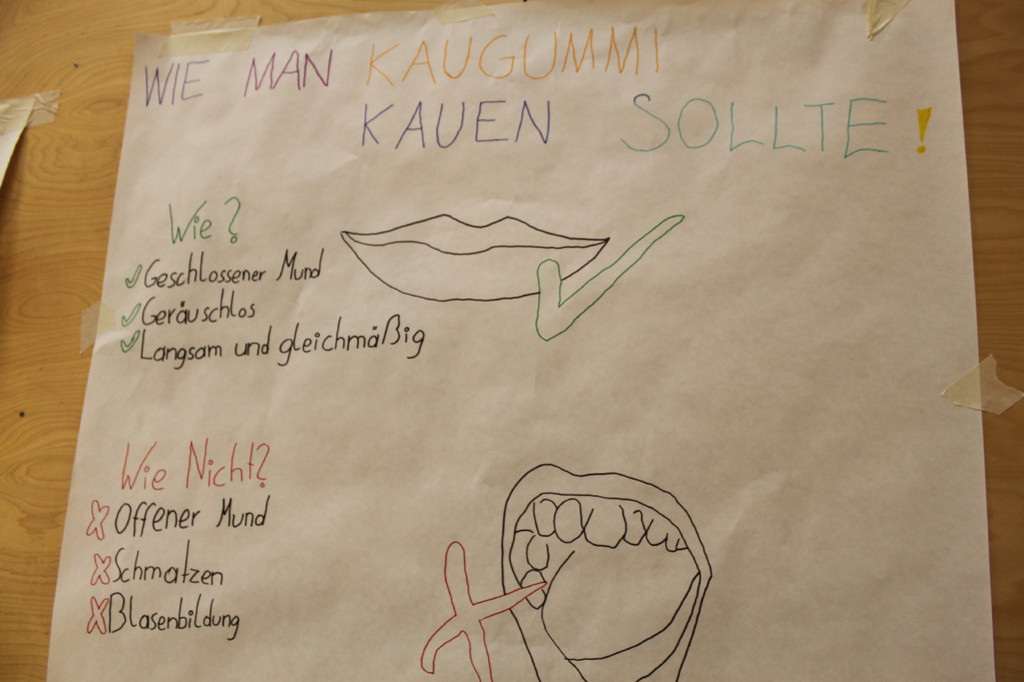 WIE MAN KAUGUMMI
KAUEN SOLLTE!
Wie?
Geschlossener Mund
Geräuschlos
Langsam und gleichmäßig
Wie Nicht?
Offener Mund
Schmatzen
Blasenbildung